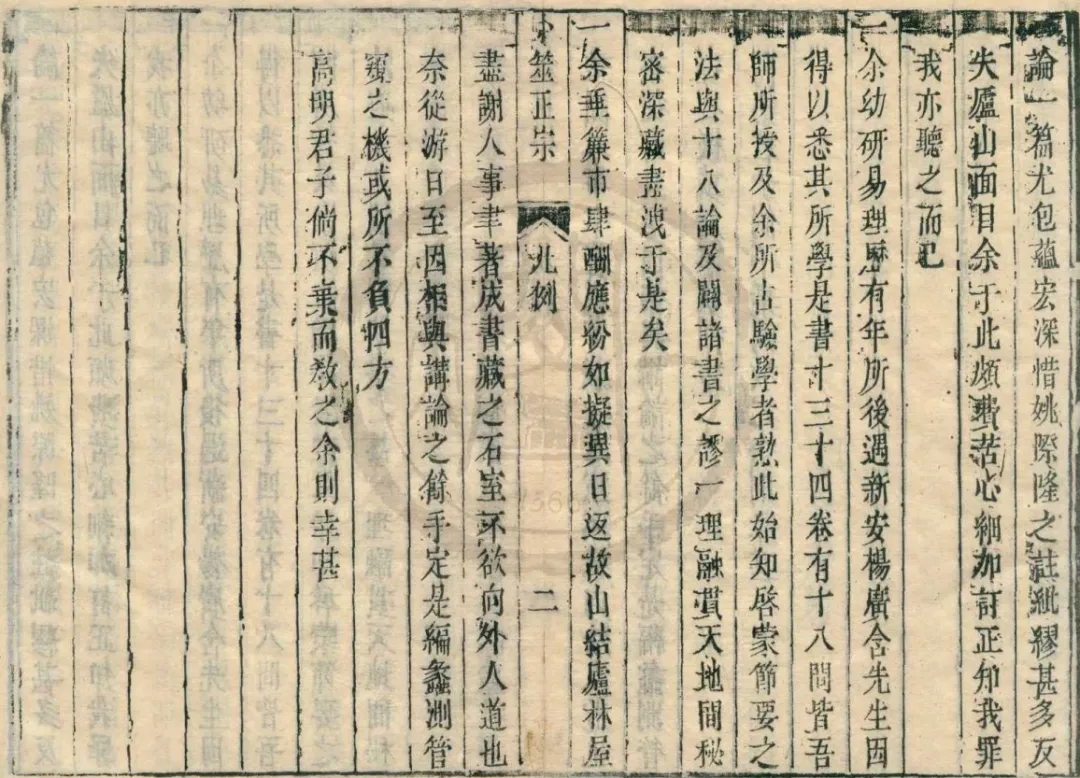 論一篇尤包蘊宏深惜姚際隆之註紕繆甚多反
失廬山面目余于此頗費苦心細加訂正知我罪
我亦聽之而已
一余幼研易理歷有年所後遇新安楊廣含先生因
得以悉其所學是書十三十四卷有十八問皆吾
師所授及余所占驗學者熟此始知啓蒙節要之
法與十八論及闢諸書之謬一理融貫天地間秘
密深藏盡洩于是矣
一余垂簾市肆酬應紛如擬異日返故山結廬林屋
卜筮正宗 凡例 二
盡謝人事聿著成書藏之石室不欲向外人道也
奈從游日至因相與講論之餘手定是編蠡測管
窺之機或所不負四方
高明君子倘不棄而敎之余則幸甚